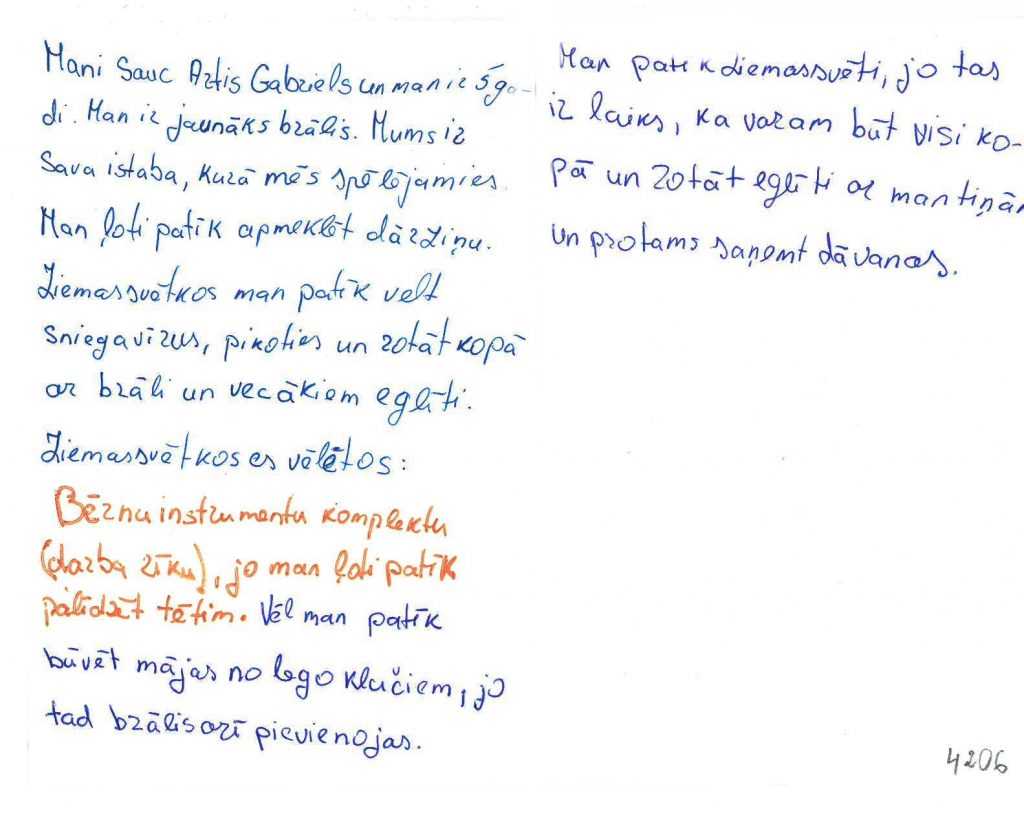 Mani Sauc Artis Gabriels un man ir 5 ga-
di. Man ir jaunāks brālis. Mums ir
Sava istaba, kurā mēs spēlējamies.
Man ļoti patīk apmeklēt dārziņu.
Ziemassvētkos man patīk velt
sniegavīrus, pikoties un rotāt kopā
ar brāli un vecākiem eglīti.
Ziemassvētkos es vēlētos:
Bērnu instrumentu komplektu
(darba rīku), jo man ļoti patīk
palīdzēt tētim. Vēl man patīk
būvēt mājas no lego klučiem, jo
tad brālis arī pievienojas.
Man patīk Ziemassvēti, jo tas
ir laiks, ka varam būt visi ko-
pā un rotāt eglīti ar mantiņām
un protams saņemt dāvanas.
4206